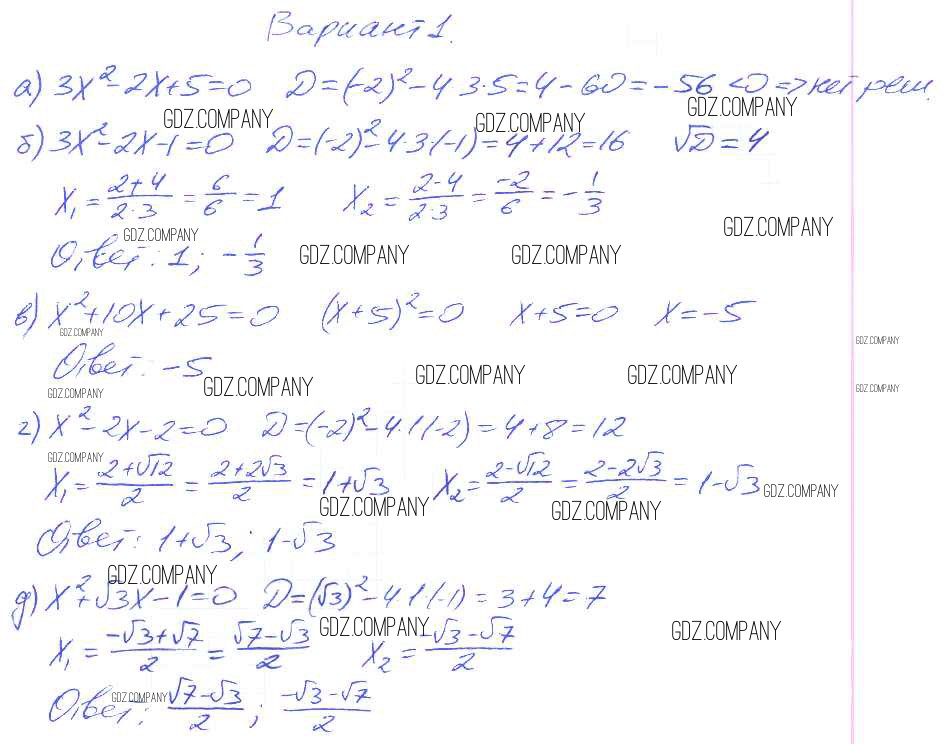 Вариант 1.
а) 3x² - 2x + 5 = 0 D = (-2)² - 4·3·5 = 4 - 60 = -56 < 0 => нет реш.
GDZ.COMPANY GDZ.COMPANY GDZ.COMPANY
б) 3x² - 2x - 1 = 0 D = (-2)² - 4·3·(-1) = 4 + 12 = 16 √D = 4
x₁ = (2+4)/(2·3) = 6/6 = 1 x₂ = (2-4)/(2·3) = -2/6 = -1/3
GDZ.COMPANY GDZ.COMPANY
Ответ: 1; -1/3 GDZ.COMPANY GDZ.COMPANY
в) x² + 10x + 25 = 0 (x+5)² = 0 x + 5 = 0 x = -5
GDZ.COMPANY GDZ.COMPANY
Ответ: -5
GDZ.COMPANY GDZ.COMPANY GDZ.COMPANY GDZ.COMPANY GDZ.COMPANY
г) x² - 2x - 2 = 0 D = (-2)² - 4·1(-2) = 4 + 8 = 12
GDZ.COMPANY
x₁ = (2+√12)/2 = (2+2√3)/2 = 1+√3 x₂ = (2-√12)/2 = (2-2√3)/2 = 1-√3 GDZ.COMPANY
GDZ.COMPANY GDZ.COMPANY
Ответ: 1+√3; 1-√3
GDZ.COMPANY
д) x² + √3x - 1 = 0 D = (√3)² - 4·1·(-1) = 3 + 4 = 7
GDZ.COMPANY GDZ.COMPANY
x₁ = (-√3+√7)/2 = (√7-√3)/2 x₂ = (-√3-√7)/2
GDZ.COMPANY
Ответ: (√7-√3)/2; (-√3-√7)/2